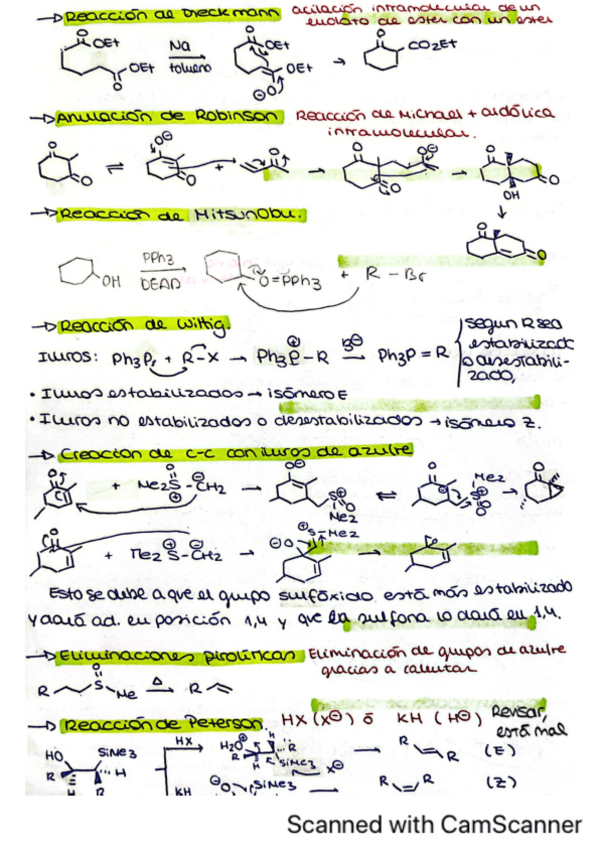 → Reacción de Dieckmann acilación intramolecular de un
enolato de ester con un ester
OEt Na OEt CO2Et
OEt tolueno OEt
O⊖
→ Anulación de Robinson Reacción de Michael + aldólica
intramolecular.
O O⊖ O O O⊖ O
O ⇌ O + → O → O
OH
↓
→ Reacción de Mitsunobu.
O
O
OH PPh3 O=PPh3 + R-Br
DEAD
→ Reacción de Wittig.
Iluros: Ph3P + R-X → Ph3P⊕-R B⊖ → Ph3P=R
según R sea
estabilizado
o desestabili-
zado,
• Iluros estabilizados → isómero E
• Iluros no estabilizados o desestabilizados → isómero Z.
→ Creación de C-C con iluros de azufre
O + Me2S⊕-CH2⊖ → O⊖ S⊕=O Me2 ⇌ O S⊕=O Me2 → O
O + Me2S⊕-CH2⊖ → ⊖O ⊕S-Me2 → O
Esto se debe a que el grupo sulfóxido está más estabilizado
y dará ad. en posición 1,4 y que la sulfona lo dará en 1,4.
→ Eliminaciones pirolíticas Eliminación de grupos de azufre
gracias a calentar
R S O Me Δ → R
→ Reacción de Peterson. HX (X⊖) ó KH (H⊖) Revisar,
está mal
HO SiMe3 HX → H2O⊕ R SiMe3 X⊖ → R R (E)
R H R
KH ⊖O SiMe3 → R R (Z)
Scanned with CamScanner